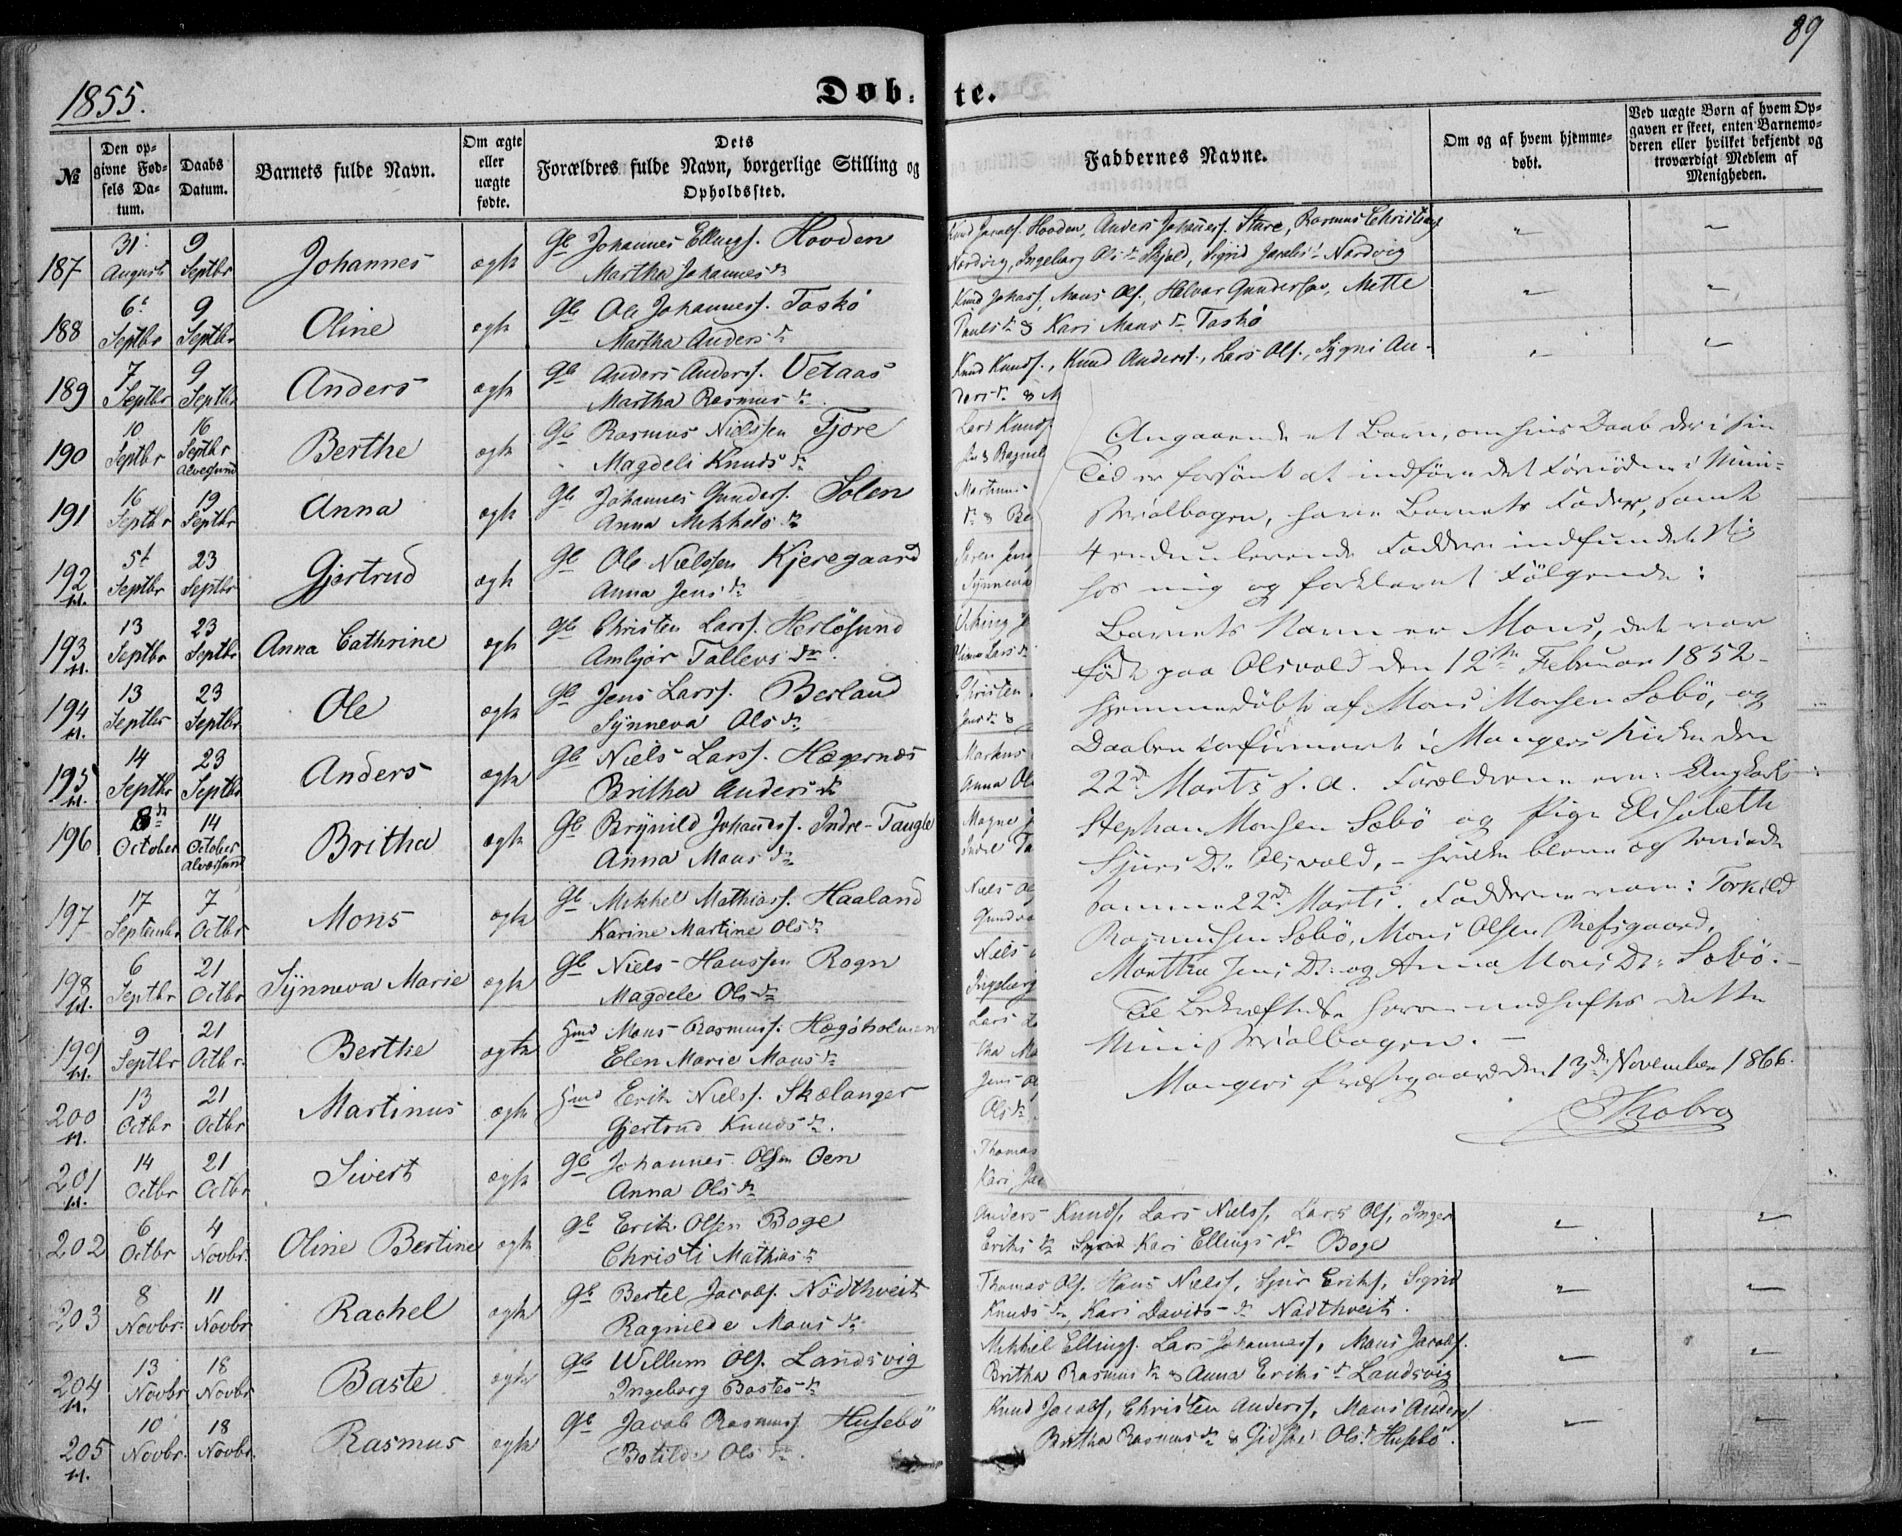 89
1855.
Døb-te.
№
Den op-
givne Fød-
sels Da-
tum.
Daabs
Datum.
Barnets fulde Navn.
Om ægte
eller
uægte
fødte.
Dets
Forældres fulde Navn, borgerlige Stilling og
Opholdssted.
Faddernes Navne.
Om og af hvem hjemme-
døbt.
Ved uægte Børn af hvem Op-
gaven er skeet, enten Barnemo-
deren eller hvilket bekjendt og
troværdigt Medlem af
Menigheden.
187 31 August 9 Septbr Johannes ægte Gb Johannes Ellings. Hovden
Martha Johannesdr
Knud Jacobs. Hovden, Anders Johanness. Stare, Rasmus Christens
Nordvig, Ingeborg Olsdr Skjold, Sigrid Jacobsdr Nordvig
188 6t Septbr 9 Septbr Oline ægte Gb Ole Johanness. Toskö
Martha Andersdr
Knud Johns., Mons Ols., Halvor Gunderssen, Mette
Paulsdr & Kari Monsdr Toskö
189 7 Septbr 9 Septbr Anders ægte Gb Anders Anderss. Vetaas
Martha Rasmusdr
Knud Knuds., Knud Anderss., Lars Ols., Sygni An-
dersdr & M
190 10 Septbr 16 Septbr Alversund Berthe ægte Gb Rasmus Nielssen Fjöre
Magdeli Knudsdr
Lars Knuds
191 16 Septbr 19 Septbr Anna ægte Gb Johannes Gunders. Solen
Anna Mikkelsdr
Martinus
192 M. 5t Septbr 23 Septbr Gjertrud ægte Gb Ole Nielssen Kjeregaard
Anna Jensdr
Synneva
193 M. 13 Septbr 23 Septbr Anna Cathrine ægte Gb Christen Larss. Herlösund
Ambjör Tollevsdr
194 M. 13 Septbr 23 Septbr Ole ægte Gb Jens Larss. Berland
Synneva Olsdr
Christen
Jensdr &
195 M. 14 Septbr 23 Septbr Anders ægte Gb Niels Larss. Hægernæs
Britha Andersdr
Markus
Anna Ols
196 8de October 14 October Alversund Britha ægte Gb Brynild Johanness. Indre-Tangle
Anna Monsdr
Magne
Indre Ta
197 17 September 7 Octbr Mons ægte Gb Mikkel Mathias. Haaland
Karine Martine Olsdr
Niels
198 M. 6 Septbr 21 Octbr Synneva Marie ægte Gb Niels Hanssen Rogn
Magdele Olsdr
Niels
Ingeborg
199 M. 9 Septbr 21 Octbr. Berthe ægte Hmd Mons Rasmuss. Hægöholmen
Elen Marie Monsdr
Lars
200 M. 13 Octbr 21 Octbr Martinus ægte Hmd Erik Niels. Skælanger
Gjertrud Knudsdr.
Jens
Olsdr
201 M. 14 Octbr 21 Octbr Sivert ægte Gb Johannes Olsen Oen
Anna Olsdr
Thomas
Kari Jac
202 6 Octbr 4 Novbr. Oline Bertine ægte Gb Erik Olsen Boge
Christi Mathiasdr
Anders Knuds, Lars Niels, Lars Ols, Inger
Eriksdr Sigrid Kari Ellingsdr Boge
203 8 Novbr. 11 Novbr. Rachel ægte Gb Bertel Jacobs. Nödthveit
Ragnilde Monsdr
Thomas Ols. Hans Niels, Sjur Eriks, Sigrid
Knudsdr, Kari Davidsdr Nödthveit.
204 M. 13 Novbr 18 Novbr Baste ægte Gb Willum Ols. Landsvig
Ingeborg Bastesdr
Mikkel Ellings. Lars Johanness, Mons Jacobs.
Britha Rasmusdr & Anna Eriksdr Landsvig
205 M. 10 Novbr. 18 Novbr. Rasmus ægte Gb Jacob Rasmuss Husebö
Botilde Olsdr
Knud Jacobs, Christen Anderss, Mons Anders
Britha Rasmusdr & Gidske Olsdr Husebö.
Angaaende et Barn, om hvis Daab der i sin
Tid er forsömt at indföre det Fornödne i Mini-
sterialbogen, have Barnets Fader, samt
4 endnu levende Faddere indfundet sig
hos mig og forklaret Fölgende:
Barnets Navn er Mons, det var
födt paa Olsvold den 12te Februar 1852-
hjemmedöbt af Mons Monsen Sæbö, og
Daaben confirmeret i Mangers Kirke den
22de Marts s. A. Forældrene ere: Ungkarl
Stephan Monsen Sæbö og Pige Elisabeth
Sjurs Dr Olsvold, - hvilke bleve ægteviede
samme 22de Marts. Fadderne vare: Torkild
Rasmussen Sæbö, Mons Olsen Refsgaard,
Martha Jens Dr og Anna Mons Dr Sæbö.-
Til Bekræftelse herom vedheftes dette
Ministerialbogen.-
Mangers Præstegaard den 13de November 1866.